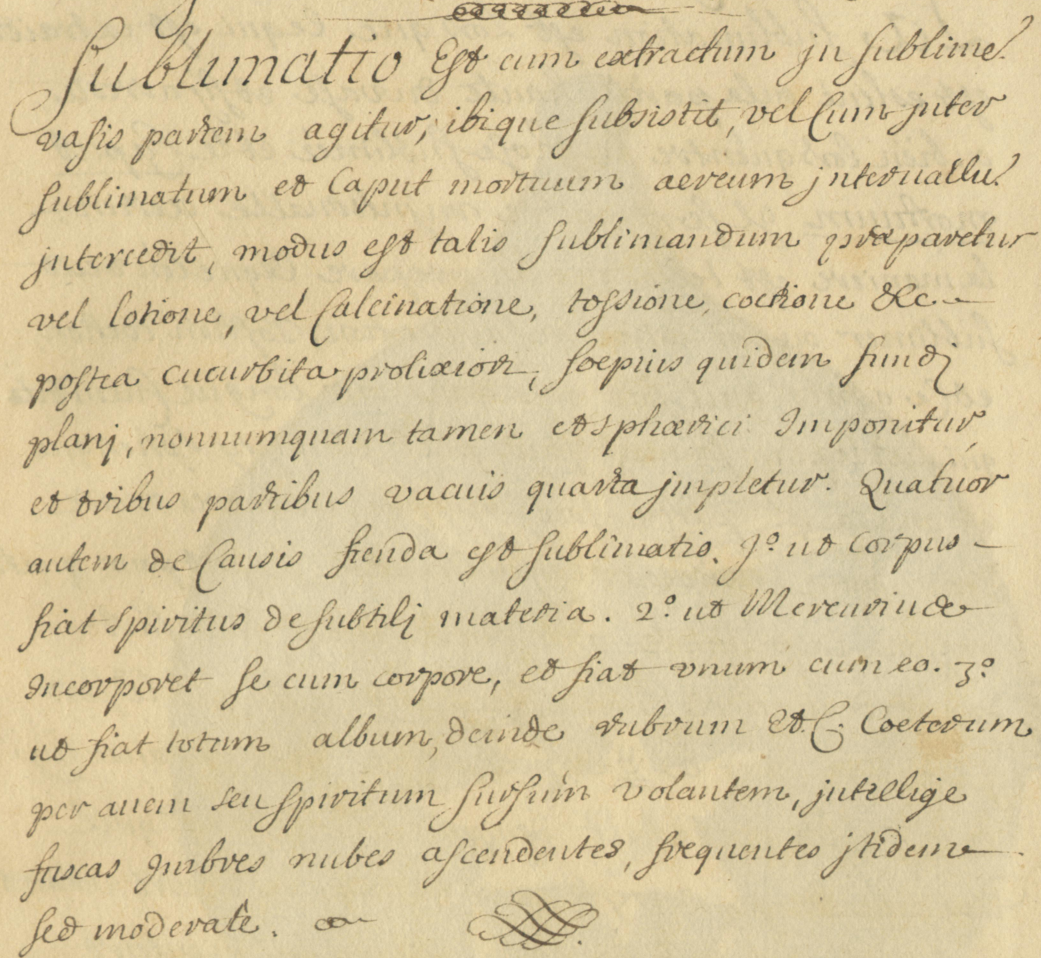 Sublimatio Est cum extractum jn sublime
vasis partem agitur, ibique subsistit, vel Cum jnter
sublimatum et Caput mortuum aereum jnteruallu
jntercedit, modus est talis sublimandum præparetur
vel lotione, vel Calcinatione, tossione, coctione &c
postea cucurbita prolixiori, sœpius quidem fundj
planj, nonnumquam tamen et sphœrici Imponitur,
et tribus partibus vacuis quarta jmpletur. Quatuor
autem de Causis fienda est sublimatio. 1º. ut corpus
fiat spiritus de subtilj materia. 2º. ut Mercurius
Incorporet se cum corpore, et fiat vnum cum eo. 3º
ut fiat totum album, deinde rubrum Et C. Cœterum
per auem seu spiritum sursum volantem, jntellige
fuscas Imbres nubes ascendentes, frequentes jtidem
sed moderate.